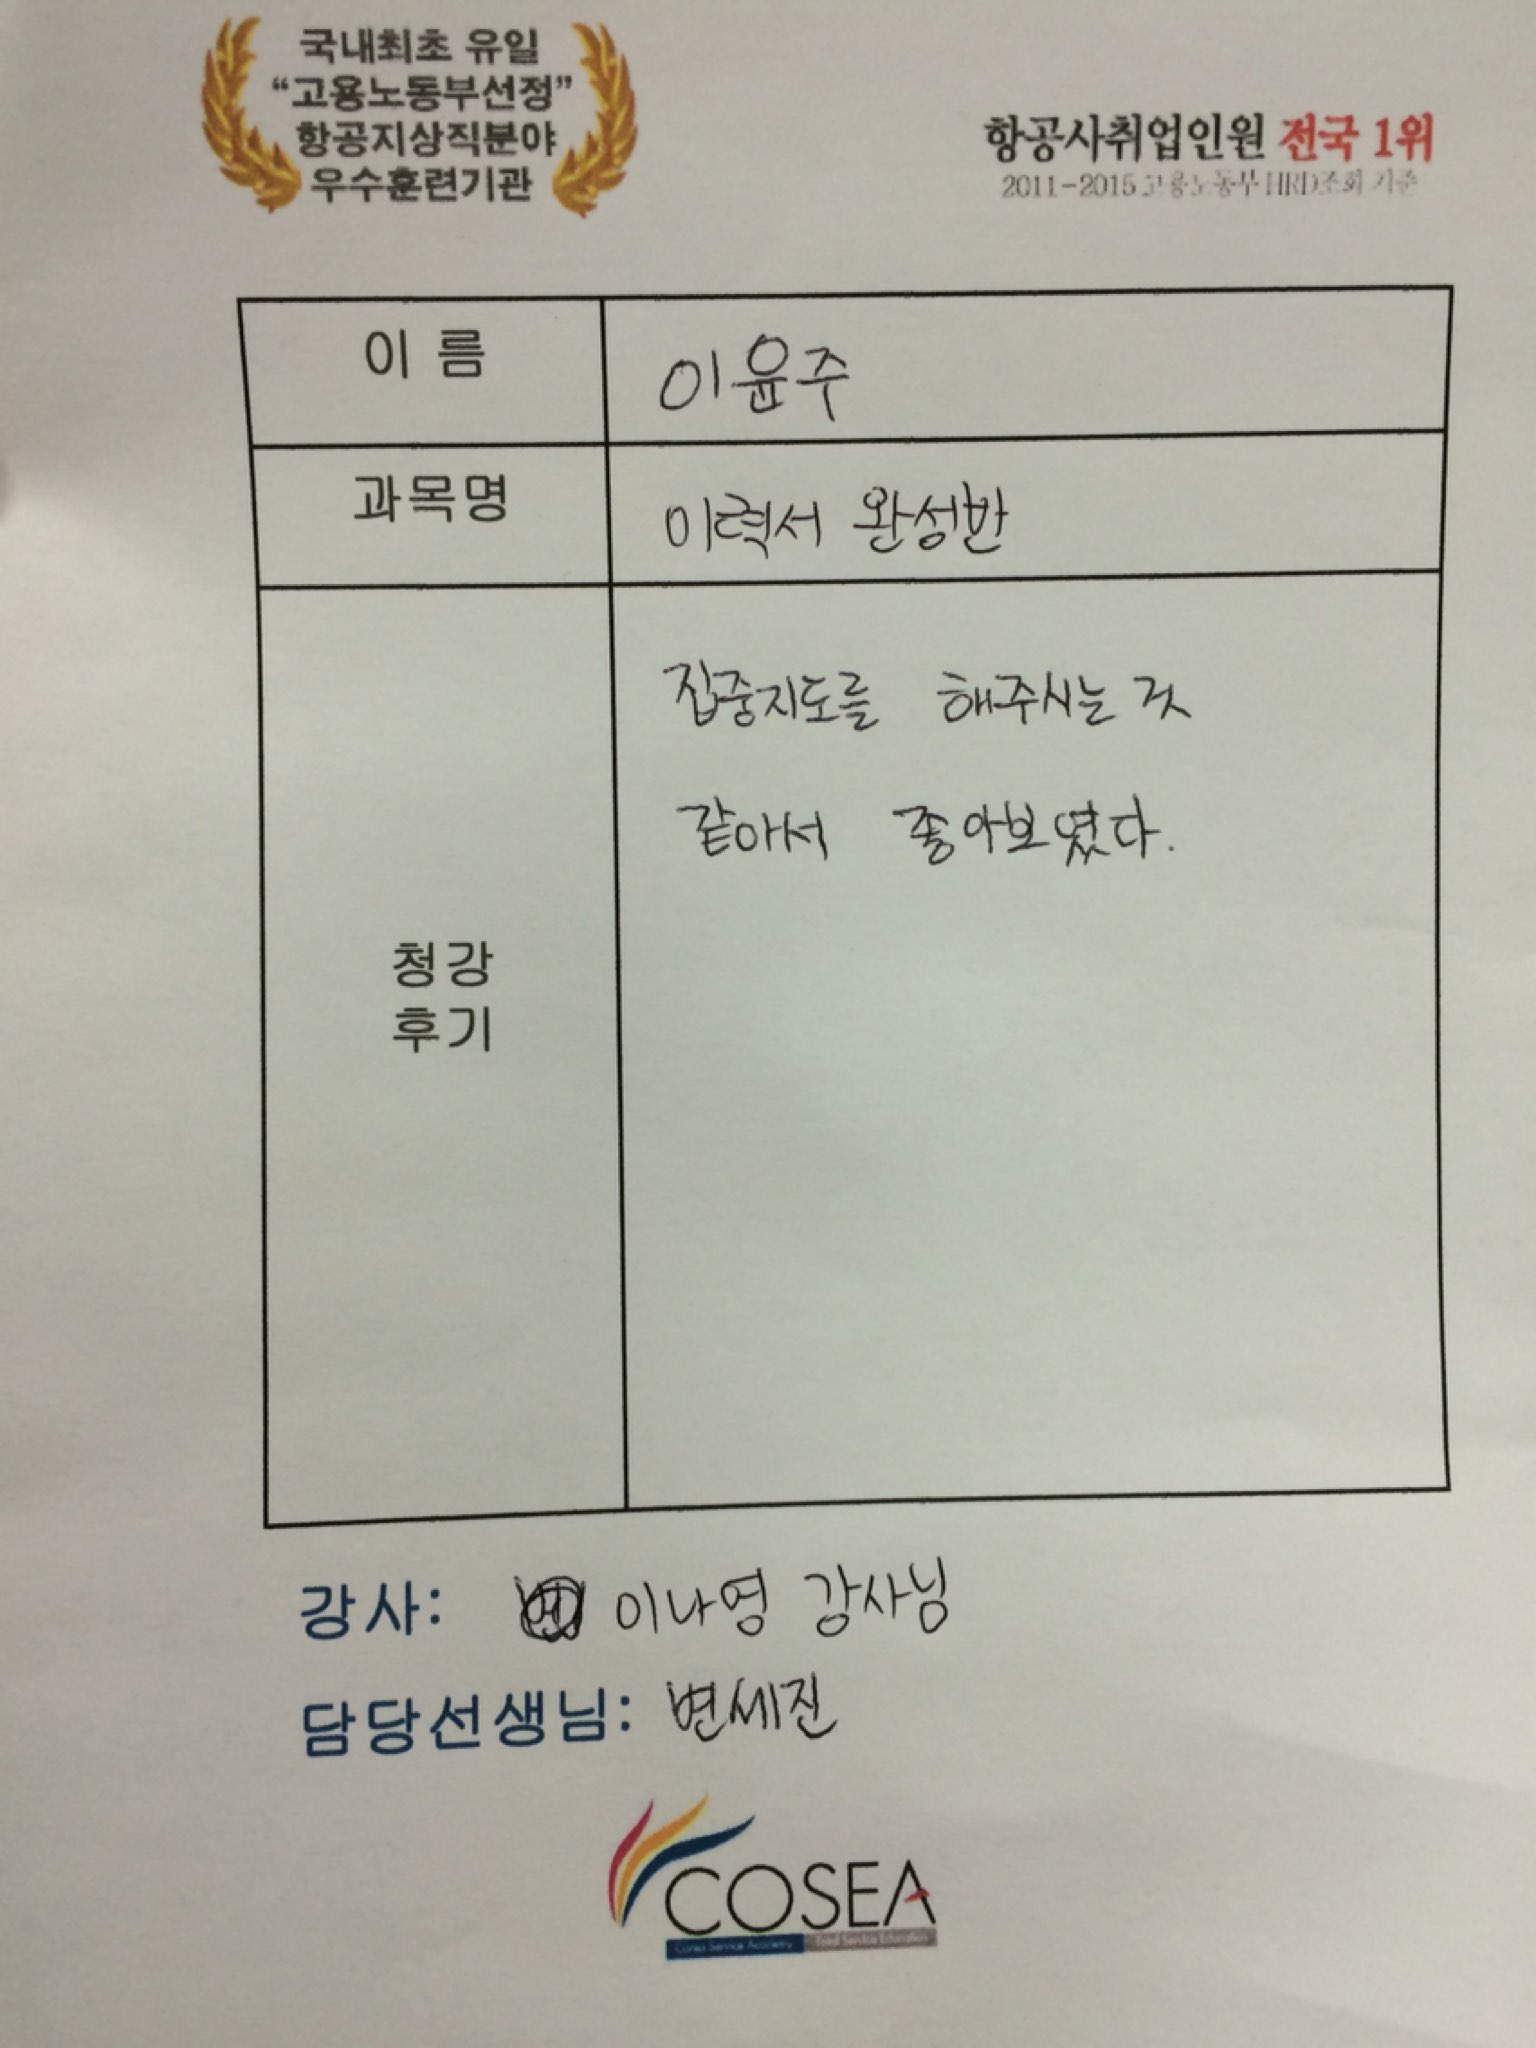 국내최초 유일
“고용노동부선정”
항공지상직분야
우수훈련기관
항공사취업인원 전국 1위
2011-2015 고용노동부 HRD조회 기준
이 름
이윤주
과목명
이력서 완성반
청강
후기
집중지도를 해주시는 것
같아서 좋아보였다.
강사: 이나영 강사님
담당선생님: 변세진
COSEA
Corea Service Academy Total Service Education